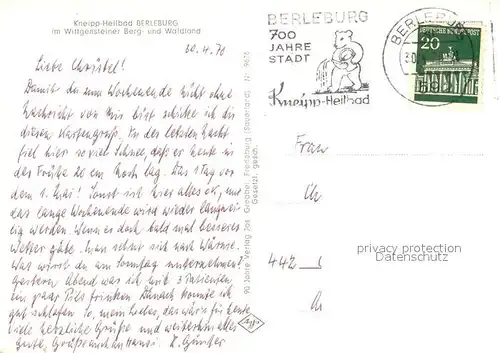 Kneipp-Heilbad BERLEBURG
im Wittgensteiner Berg- und Waldland
30.4.70
Liebe Christel!
Damit du zum Wochenende nicht ohne
Nachricht von mir bist schicke ich dir
diesen Kartengruß. In der letzten Nacht
fiel hier so viel Schnee, daß er heute in
der Frühe 20 cm hoch lag. Das 1 Tag vor
dem 1. Mai! Sonst ist hier alles ok, nur
das lange Wochenende wird wieder langwei-
lig werden. Wenn es doch bald mal besseres
Wetter gäbe. Man sehnt sich nach Wärme.
Was wirst du am Sonntag unternehmen?
Gestern Abend war ich mit 3 Patienten
ein paar Pils trinken. Danach konnte ich
gut schlafen. So, mein Liebes, das wär's für heute
Viele herzliche Grüße und weiterhin alles
Gute, Günter
90 Jahre Verlag Jos. Grobbel, Fredeburg (Sauerland) Nr. 9676
Gesetzl. gesch.
BERLEBURG
700
JAHRE
STADT
Kneipp-Heilbad
BERLEBURG
30
592
DEUTSCHE BUNDESPOST
20
Frau
Ch
privacy protection
Datenschutz
442